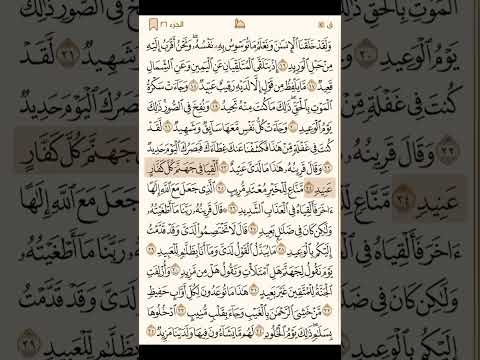 ق
الجزء ٢٦
وَلَقَدْ خَلَقْنَا ٱلْإِنسَٰنَ وَنَعْلَمُ مَا تُوَسْوِسُ بِهِۦ نَفْسُهُۥ وَنَحْنُ أَقْرَبُ إِلَيْهِ
مِنْ حَبْلِ ٱلْوَرِيدِ ١٦ إِذْ يَتَلَقَّى ٱلْمُتَلَقِّيَانِ عَنِ ٱلْيَمِينِ وَعَنِ ٱلشِّمَالِ
قَعِيدٌ ١٧ مَّا يَلْفِظُ مِن قَوْلٍ إِلَّا لَدَيْهِ رَقِيبٌ عَتِيدٌ ١٨ وَجَآءَتْ سَكْرَةُ
ٱلْمَوْتِ بِٱلْحَقِّ ذَٰلِكَ مَا كُنتَ مِنْهُ تَحِيدُ ١٩ وَنُفِخَ فِى ٱلصُّورِ ذَٰلِكَ
يَوْمُ ٱلْوَعِيدِ ٢٠ وَجَآءَتْ كُلُّ نَفْسٍ مَّعَهَا سَآئِقٌ وَشَهِيدٌ ٢١ لَّقَدْ
كُنتَ فِى غَفْلَةٍ مِّنْ هَٰذَا فَكَشَفْنَا عَنكَ غِطَآءَكَ فَبَصَرُكَ ٱلْيَوْمَ حَدِيدٌ
٢٢ وَقَالَ قَرِينُهُۥ هَٰذَا مَا لَدَىَّ عَتِيدٌ ٢٣ أَلْقِيَا فِى جَهَنَّمَ كُلَّ كَفَّارٍ
عَنِيدٍ ٢٤ مَّنَّاعٍ لِّلْخَيْرِ مُعْتَدٍ مُّرِيبٍ ٢٥ ٱلَّذِى جَعَلَ مَعَ ٱللَّهِ إِلَٰهًا
ءَاخَرَ فَأَلْقِيَاهُ فِى ٱلْعَذَابِ ٱلشَّدِيدِ ٢٦ قَالَ قَرِينُهُۥ رَبَّنَا مَآ أَطْغَيْتُهُۥ
وَلَٰكِن كَانَ فِى ضَلَٰلٍ بَعِيدٍ ٢٧ قَالَ لَا تَخْتَصِمُوا۟ لَدَىَّ وَقَدْ قَدَّمْتُ
إِلَيْكُم بِٱلْوَعِيدِ ٢٨ مَا يُبَدَّلُ ٱلْقَوْلُ لَدَىَّ وَمَآ أَنَا۠ بِظَلَّٰمٍ لِّلْعَبِيدِ ٢٩
يَوْمَ نَقُولُ لِجَهَنَّمَ هَلِ ٱمْتَلَأْتِ وَتَقُولُ هَلْ مِن مَّزِيدٍ ٣٠ وَأُزْلِفَتِ
ٱلْجَنَّةُ لِلْمُتَّقِينَ غَيْرَ بَعِيدٍ ٣١ هَٰذَا مَا تُوعَدُونَ لِكُلِّ أَوَّابٍ حَفِيظٍ
٣٢ مَّنْ خَشِىَ ٱلرَّحْمَٰنَ بِٱلْغَيْبِ وَجَآءَ بِقَلْبٍ مُّنِيبٍ ٣٣ ٱدْخُلُوهَا
بِسَلَٰمٍ ذَٰلِكَ يَوْمُ ٱلْخُلُودِ ٣٤ لَهُم مَّا يَشَآءُونَ فِيهَا وَلَدَيْنَا مَزِيدٌ ٣٥